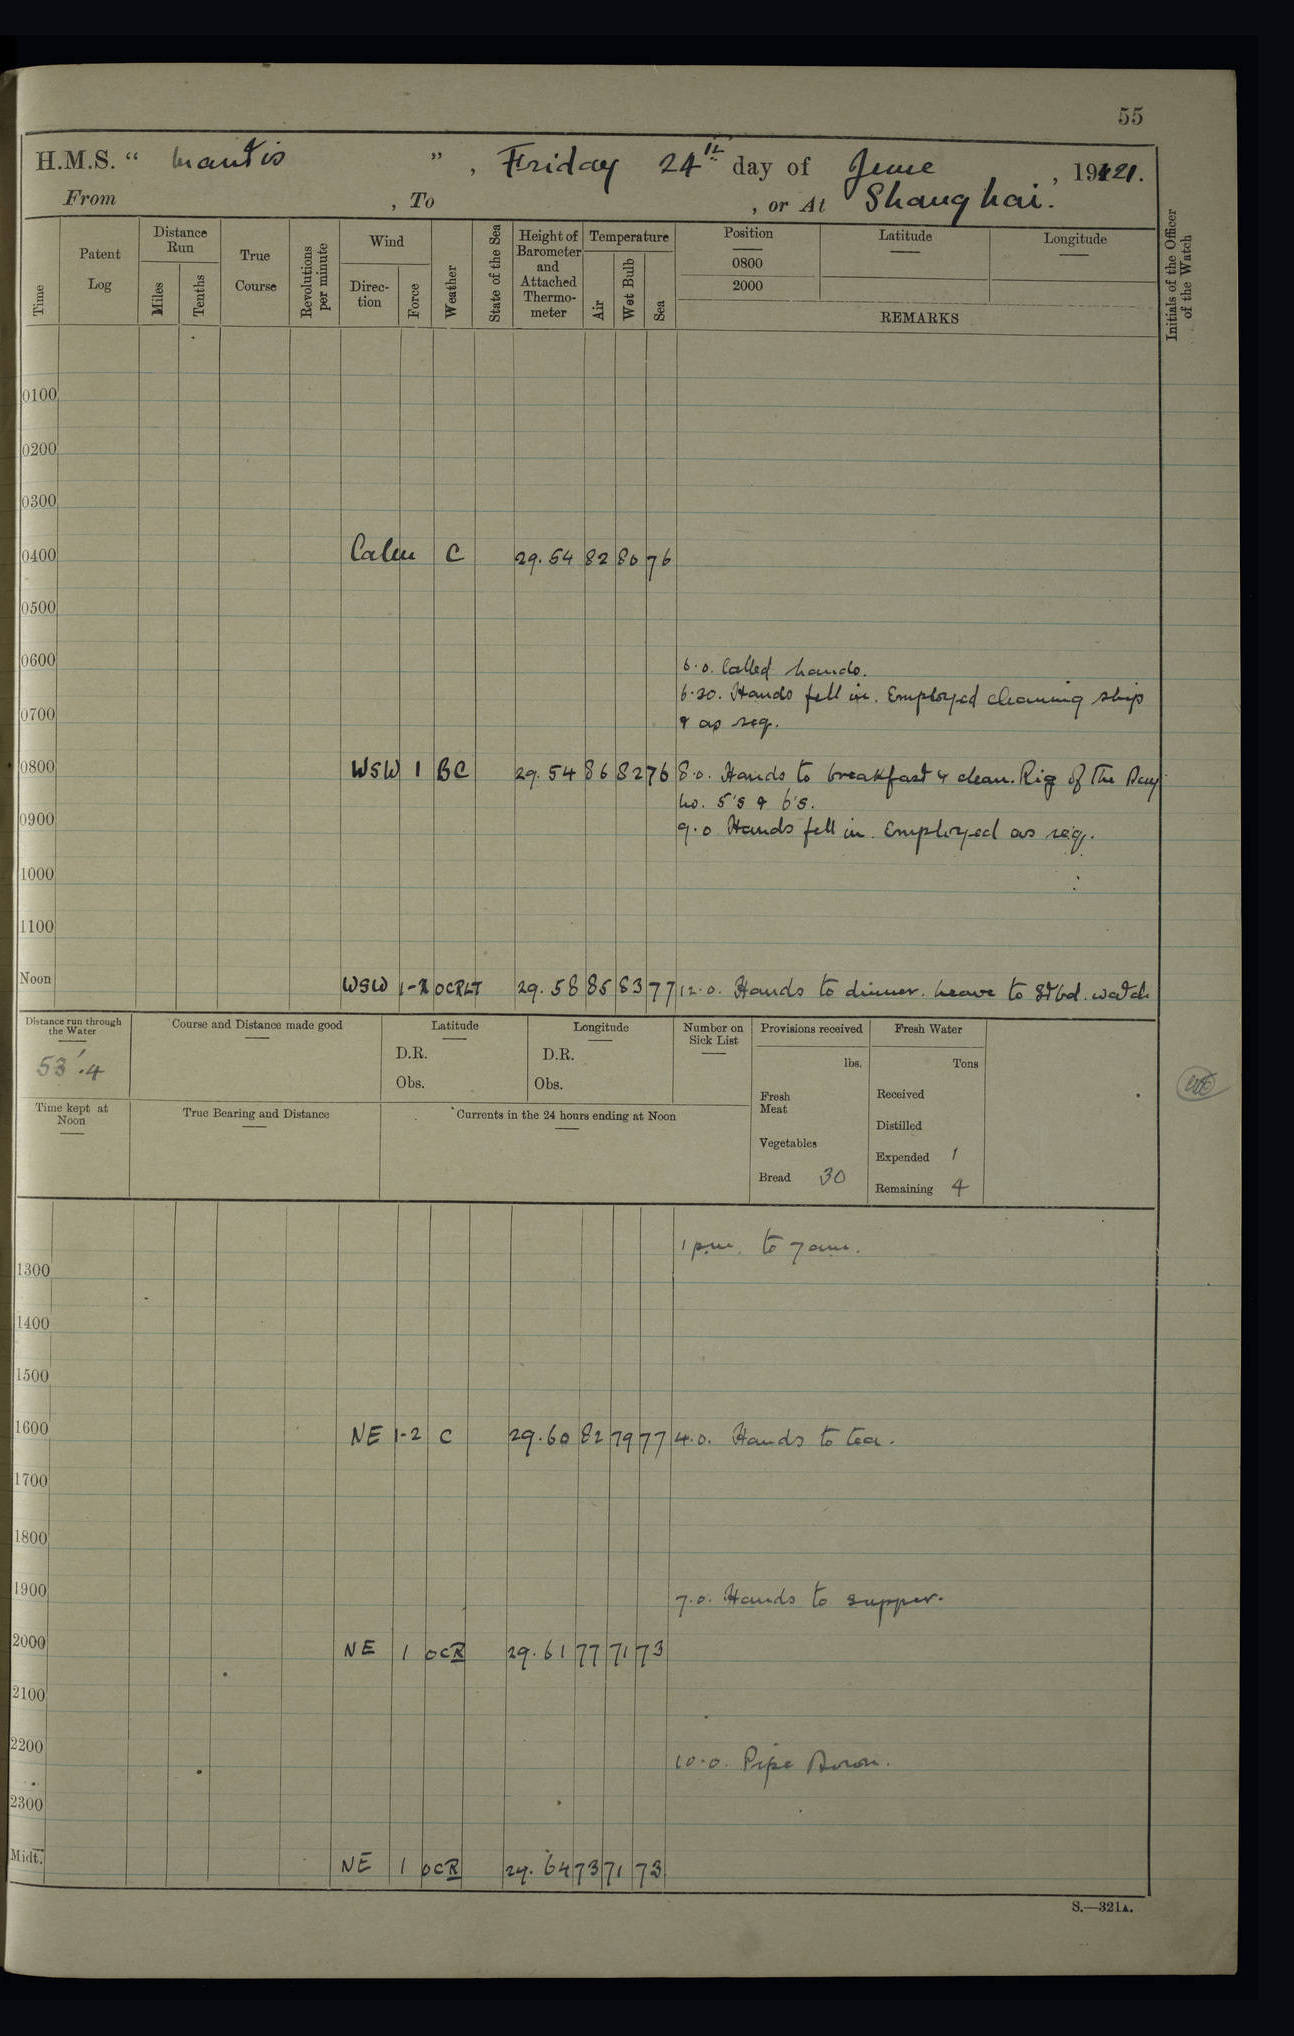 55
H.M.S. " Mantis ", Friday 24th day of June, 1921.
From , To , or At Shanghai.
Time
Patent Log
Distance Run
Miles
Tenths
True Course
Revolutions per minute
Wind
Direction
Force
Weather
State of the Sea
Height of Barometer and Attached Thermometer
Temperature
Air
Wet Bulb
Sea
Position
0800
2000
Latitude
Longitude
REMARKS
Initials of the Officer of the Watch
0100
0200
0300
0400 Calm C 29.54 82 80 76
0500
0600 6.0. Called hands.
6.20. Hands fell in. Employed cleaning ship
0700 & as req.
0800 WSW 1 BC 29.54 86 82 76 8.0. Hands to breakfast & clean. Rig of the Day
No. 5's & 6's.
0900 9.0 Hands fell in. Employed as req.
1000
1100
Noon WSW 1-2 OCRLT 29.58 85 83 77 12.0. Hands to dinner. Leave to Stbd. watch
Distance run through the Water
53'.4
Time kept at Noon
Course and Distance made good
True Bearing and Distance
Latitude
D.R.
Obs.
Longitude
D.R.
Obs.
Currents in the 24 hours ending at Noon
Number on Sick List
Provisions received
lbs.
Fresh Meat
Vegetables
Bread 30
Fresh Water
Tons
Received
Distilled
Expended 1
Remaining 4
1 pm. to 7 am.
1300
1400
1500
1600 NE 1-2 C 29.60 82 79 77 4.0. Hands to tea.
1700
1800
1900 7.0. Hands to supper.
2000 NE 1 OCR 29.61 77 71 73
2100
2200 10.0. Pipe Down.
2300
Midt. NE 1 OCR 29.64 73 71 73
S.—321A.